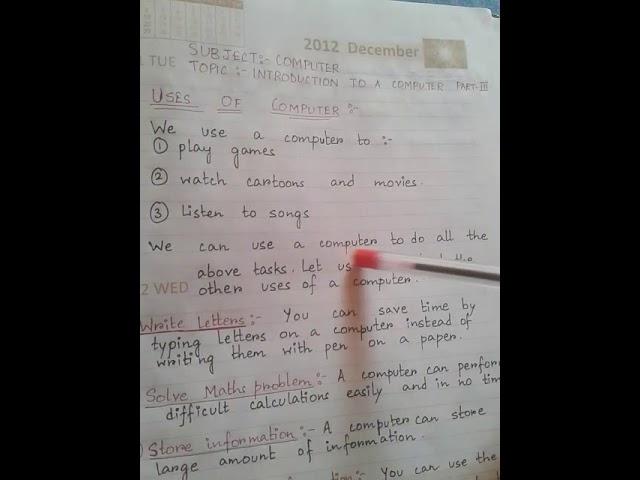 2012 December
SUBJECT:- COMPUTER
TUE TOPIC:- INTRODUCTION TO A COMPUTER PART-III
USES OF COMPUTER :-
We use a computer to :-
① play games
② watch cartoons and movies.
③ Listen to songs
We can use a computer to do all the
above tasks. Let us the
2 WED other uses of a computer.
Write Letters:- You can save time by
typing Letters on a computer instead of
writing them with pen on a paper.
Solve Maths problem:- A computer can perform
difficult calculations easily and in no
Store information:- A computer can store
large amount of information.
You can use the